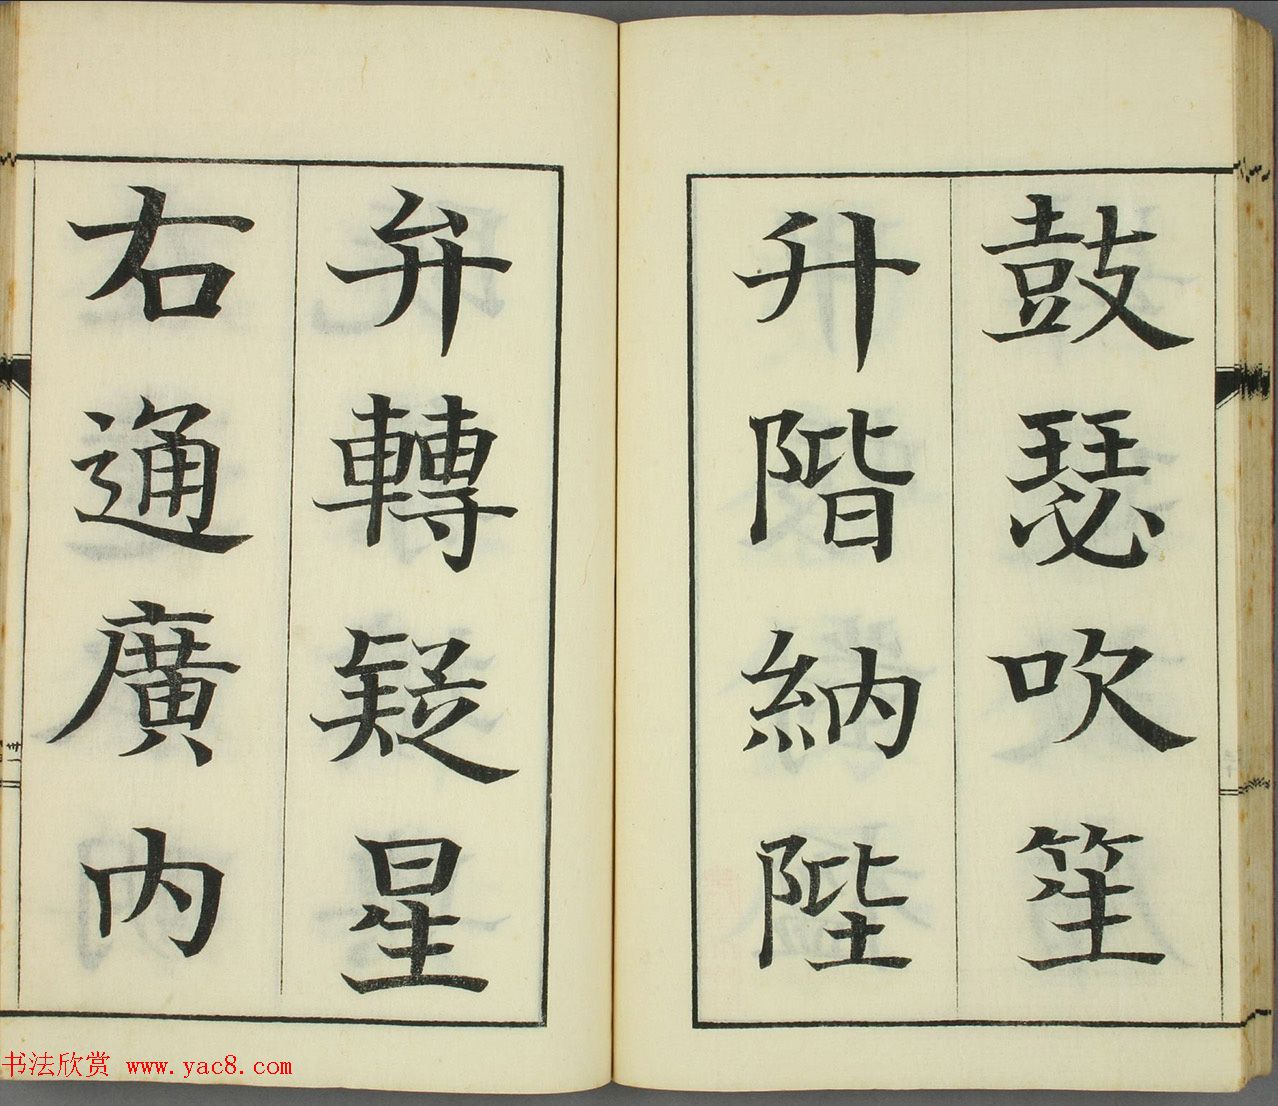 鼓瑟吹笙
升階納陛
弁轉疑星
右通廣內
卅一
书法欣赏 www.yac8.com